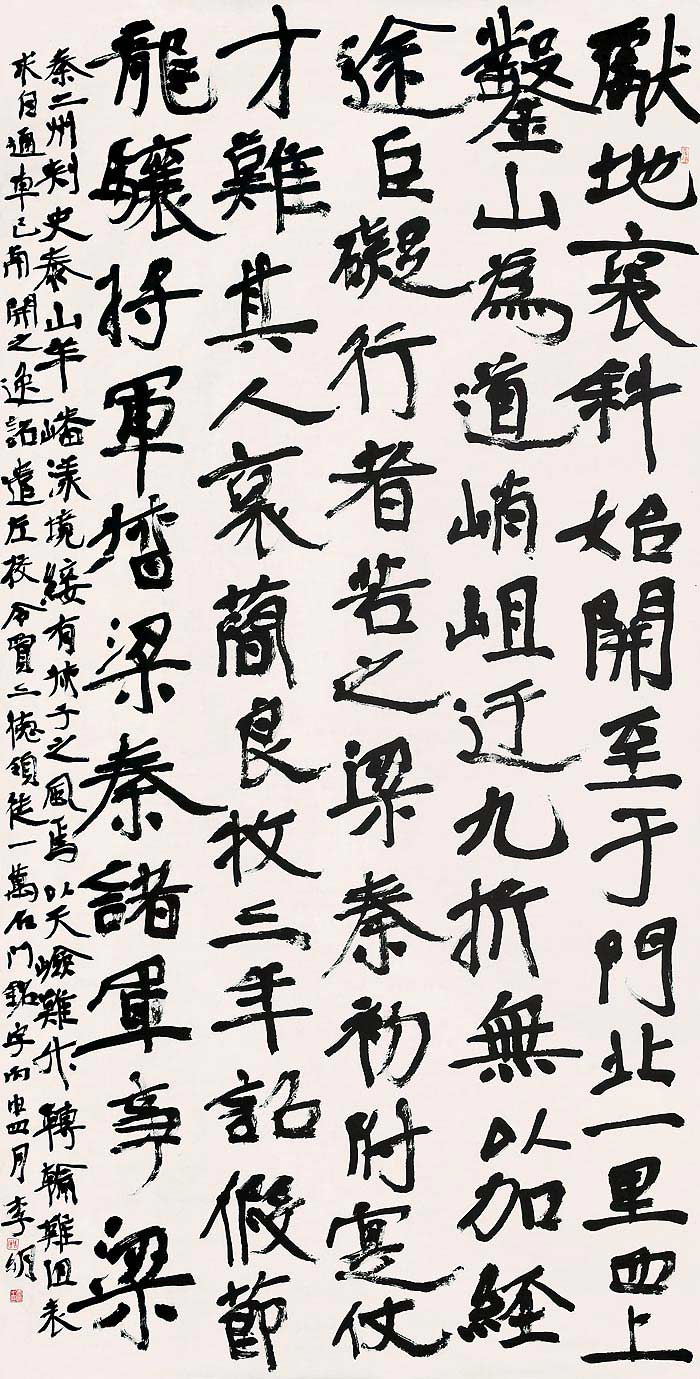 獻地褒斜始開至于門北一里西上
鑿山為道峭岨迂九折無以加經
途巨礙行者苦之梁秦初附寔仗
才難其人褒簡良牧三年詔假節
龍驤將軍督梁秦諸軍事梁
秦二州刺史泰山羊嶓漾境綏有叔子之風焉以天嶮難升轉輸難阻表
求自通車已南開之逸詔遣左校令賈三德領徒一萬石門銘字丙申四月李明